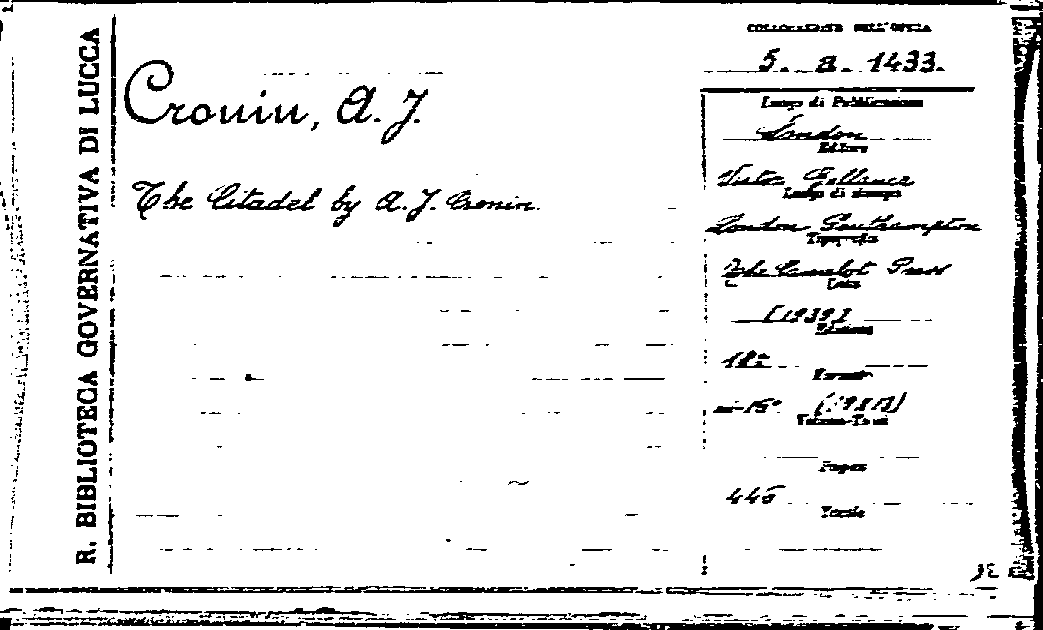 R. BIBLIOTECA GOVERNATIVA DI LUCCA
Cronin, A. J.
The Citadel by A. J. Cronin.
COLLOCAZIONE DELL'OPERA
5. a. 1433.
Luogo di Pubblicazione
London
Editore
Victor Gollancz
Luogo di stampa
London Southampton
Tipografia
The Camelot Press
Data
[1939]
Edizione
18ª
Formato
in-16°
Volume-Tomi
Pagine
446
Tavole